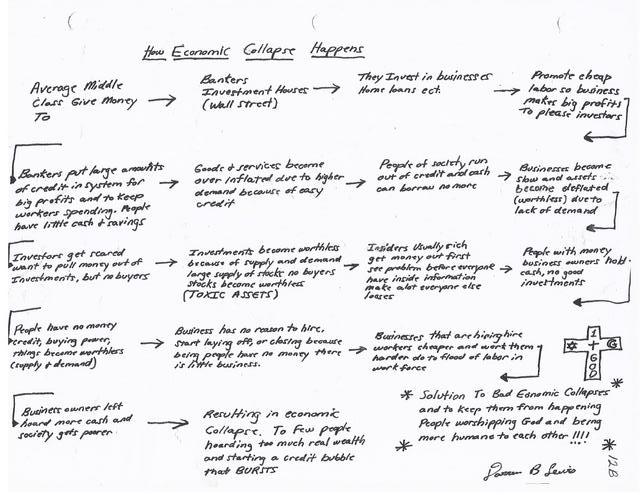 How Economic Collapse Happens
Average Middle
Class Give Money
To
Bankers
Investment Houses
(Wall Street)
They Invest in businesses
Home loans ect.
Promote cheap
labor so business
makes big profits
To please investors
Bankers put large amounts
of credit in system for
big profits and to keep
workers spending. People
have little cash & savings
Goods & services become
over inflated due to higher
demand because of easy
credit
People of society run
out of credit and cash
can borrow no more
Businesses become
slow and assets
become deflated
(worthless) due to
lack of demand
Investors get scared
want to pull money out of
Investments, but no buyers
Investments become worthless
because of supply and demand
large supply of stocks no buyers
stocks become worthless
(TOXIC ASSETS)
Insiders Usually rich
get money out first
see problem before everyone
have inside information
make alot everyone else
looses
People with money
business owners hold
cash, no good
investments
People have no money
credit, buying power,
things become worthless
(supply & demand)
Business has no reason to hire,
start laying off, or closing because
being people have no money there
is little business.
Businesses that are hiring hire
workers cheaper and work them
harder do to flood of labor in
work force
1
+
G
O
D
G
Business owners left
hoard more cash and
society gets poorer
Resulting in economic
Collapse. To Few people
hoarding too much real wealth
and starting a credit bubble
that BURSTS
* Solution To Bad Eonomic Collapses *
and to keep them from happening
People worshipping God and being
* more humane to each other !!!! *
Darren B Lewis
12B